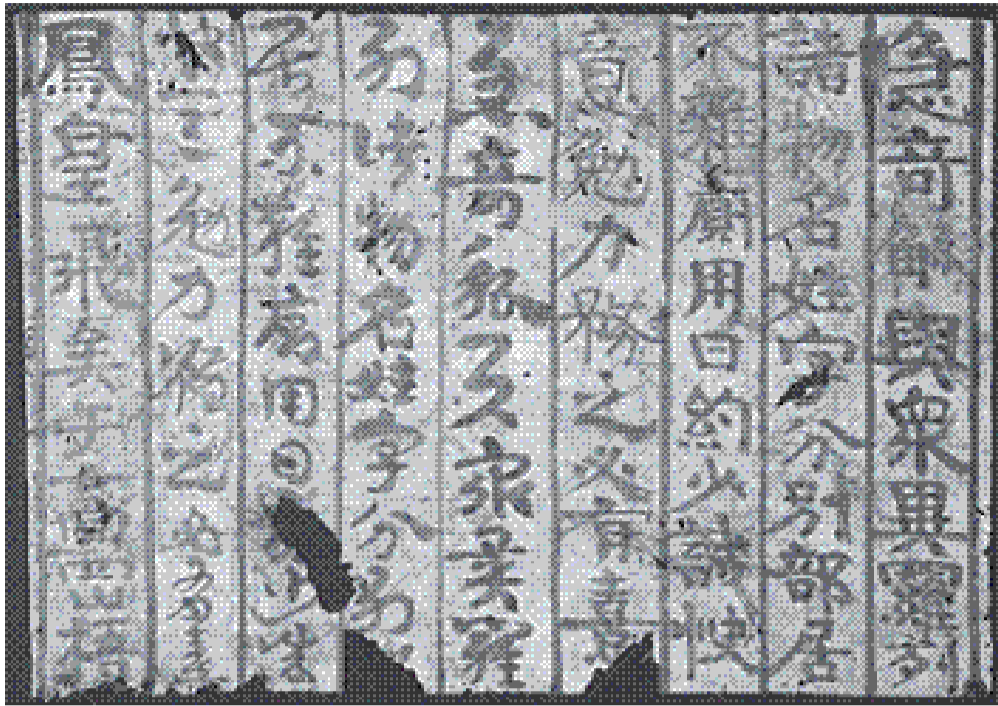 急奇觚與衆異羅列
諸物名姓字分別部居
不雜廁用日約少誠快
意勉力務之必有喜
急奇觚與衆異羅
列諸物名姓字分別
居不雜廁用日少誠
意勉力務之必有喜
鳳皇飛